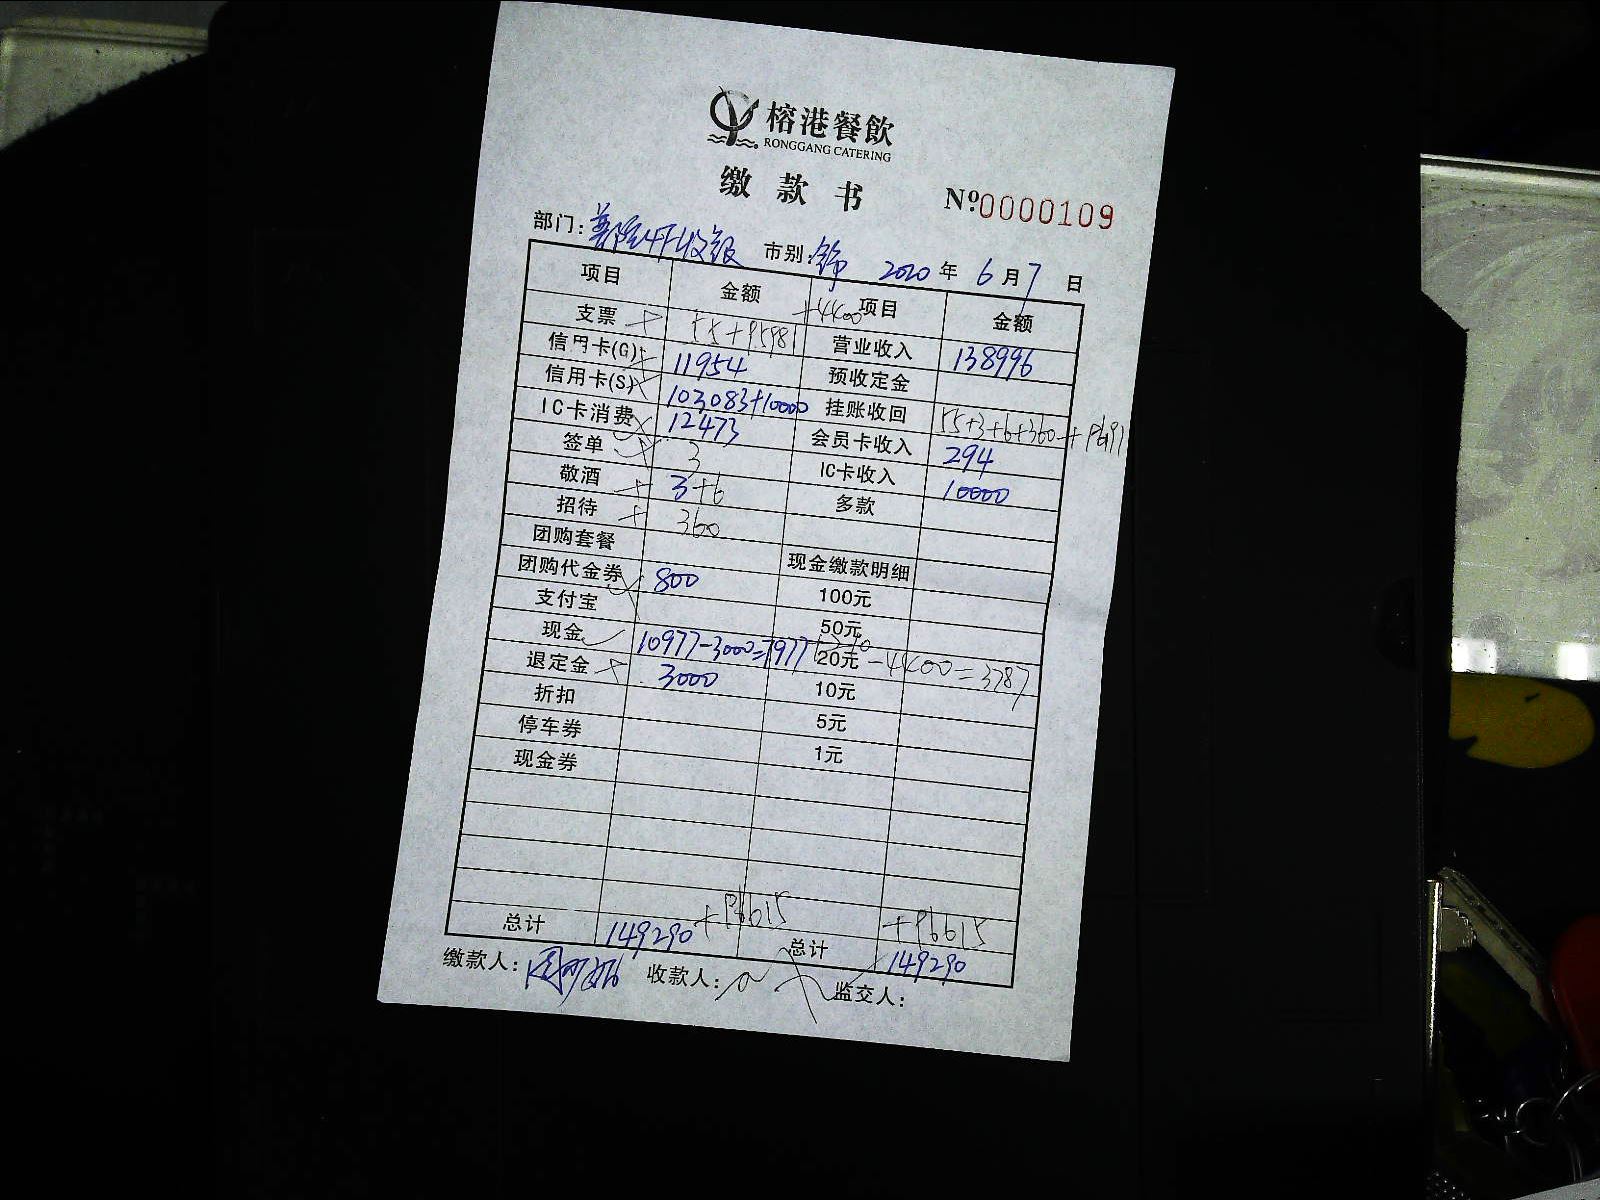 榕港餐飲
RONGGANG CATERING
缴款书 №0000109
部门: 市别: 2020年6月7日
项目 金额 项目 金额
+4400
支票 营业收入 138996
信用卡(G) 11954 预收定金
信用卡(S) 103083+10000 挂账收回
IC卡消费 12473 会员卡收入 294
签单 3 IC卡收入 10000
敬酒 3+6 多款
招待 360
团购套餐 现金缴款明细
团购代金券 800 100元
支付宝 50元
现金 10977-3000=7977 20元 -4400=3787
退定金 3000 10元
折扣 5元
停车券 1元
现金券
总计 149290 总计 149290
缴款人: 收款人: 监交人: